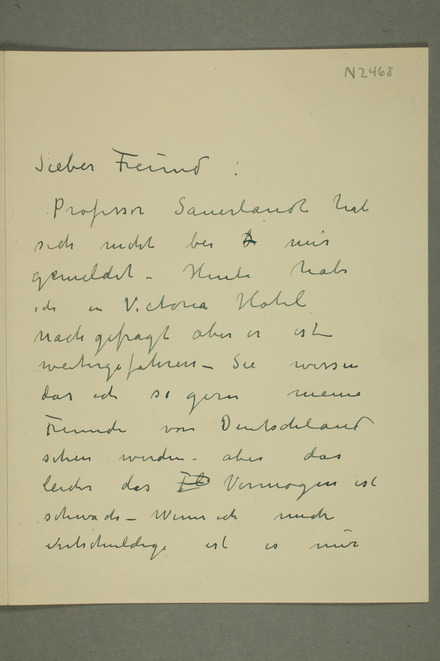 N2468
Lieber Freund :
Professor Sauerlandt hat
sich nicht bei mir
gemeldet – Heute habe
ich in Victoria Hotel
nachgefragt aber er ist
weitergefahren – Sie wissen
das ich so gern meine
Freunde von Deutschland
sehen werden – aber das
leider das Vermogen ist
schwach – Wenn ich mich
entschuldige ist es mir